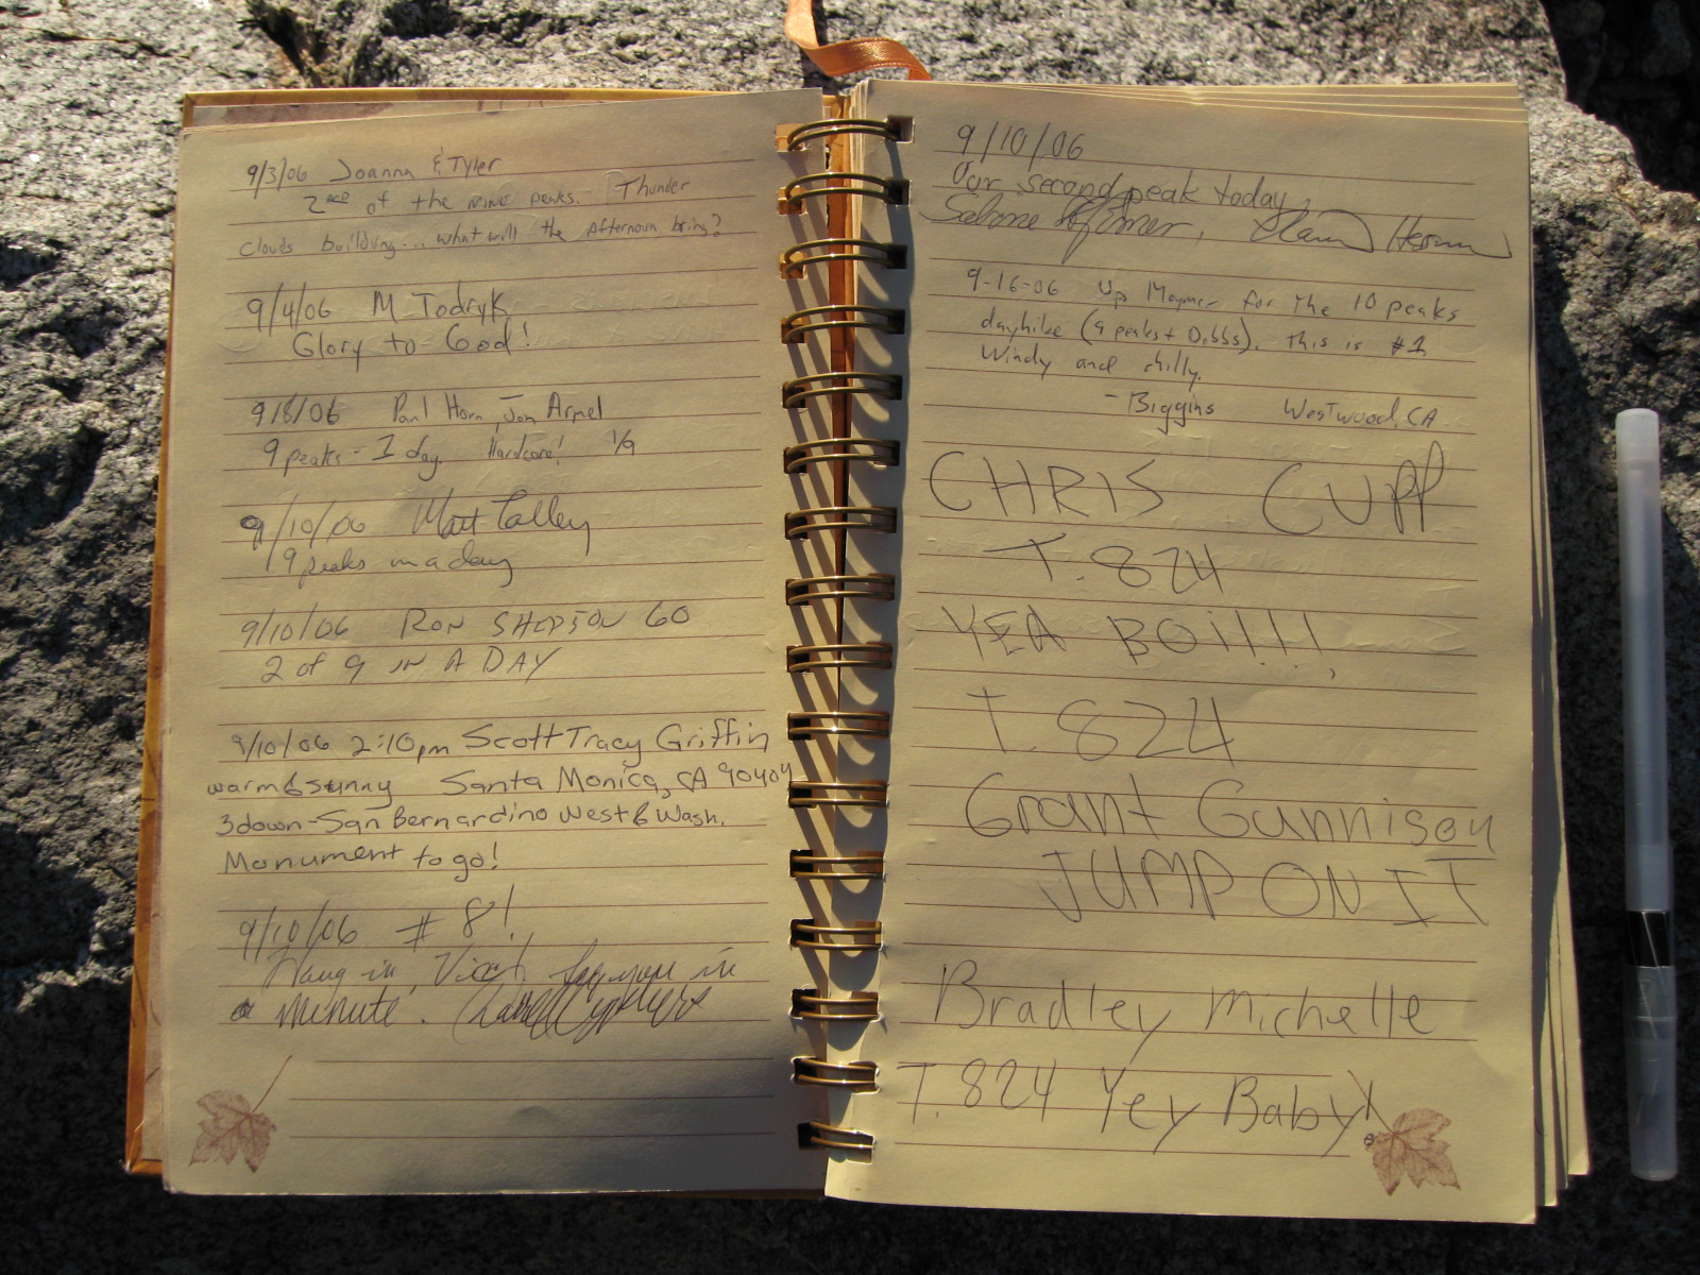 9/3/06 Joanna & Tyler
2nd of the nine peaks. Thunder
clouds building... what will the Afternoon bring?
9/4/06 M Todryk
Glory to God!
9/8/06 Paul Horn, Jon Armel
9 peaks - 1 day. Hardcore! 1/9
9/10/06 Matt Talley
9 peaks in a day
9/10/06 RON 60
2 of 9 IN A DAY
9/10/06 2:10pm Scott Tracy Griffin
warm & sunny Santa Monica, CA 90404
3 down - San Bernardino West & Wash.
Monument to go!
9/10/06 # 8!
Hang in, see you in
a minute.
9/10/06
Our second peak today,
Sabine
9-16-06 Up Momyer for the 10 peaks
dayhike (9 peaks + Dobbs). This is #1
Windy and chilly.
- Biggins Westwood, CA
CHRIS CUPP
T.824
YEA BOI!!!!
T.824
Grant Gunnison
JUMP ON IT
Bradley Michelle
T.824 Yey Baby